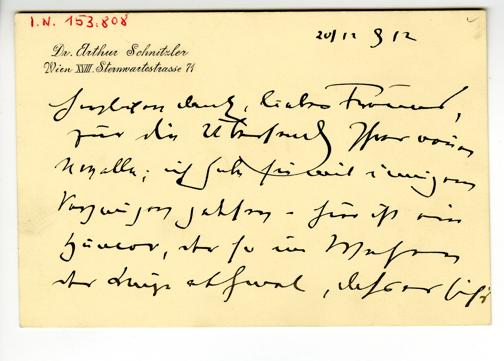 I.N. 153.808
20/12 912
Dr. Arthur Schnitzler
Wien XVIII. Sternwartestrasse 71
Herzlichen Dank, lieber Freund,
für die Übersendg Ihrer neuen
Novelle; ich habe sie mit innigem
Vergnügen gelesen - hier ist ein
Humor, der so im Wesen
der Dinge